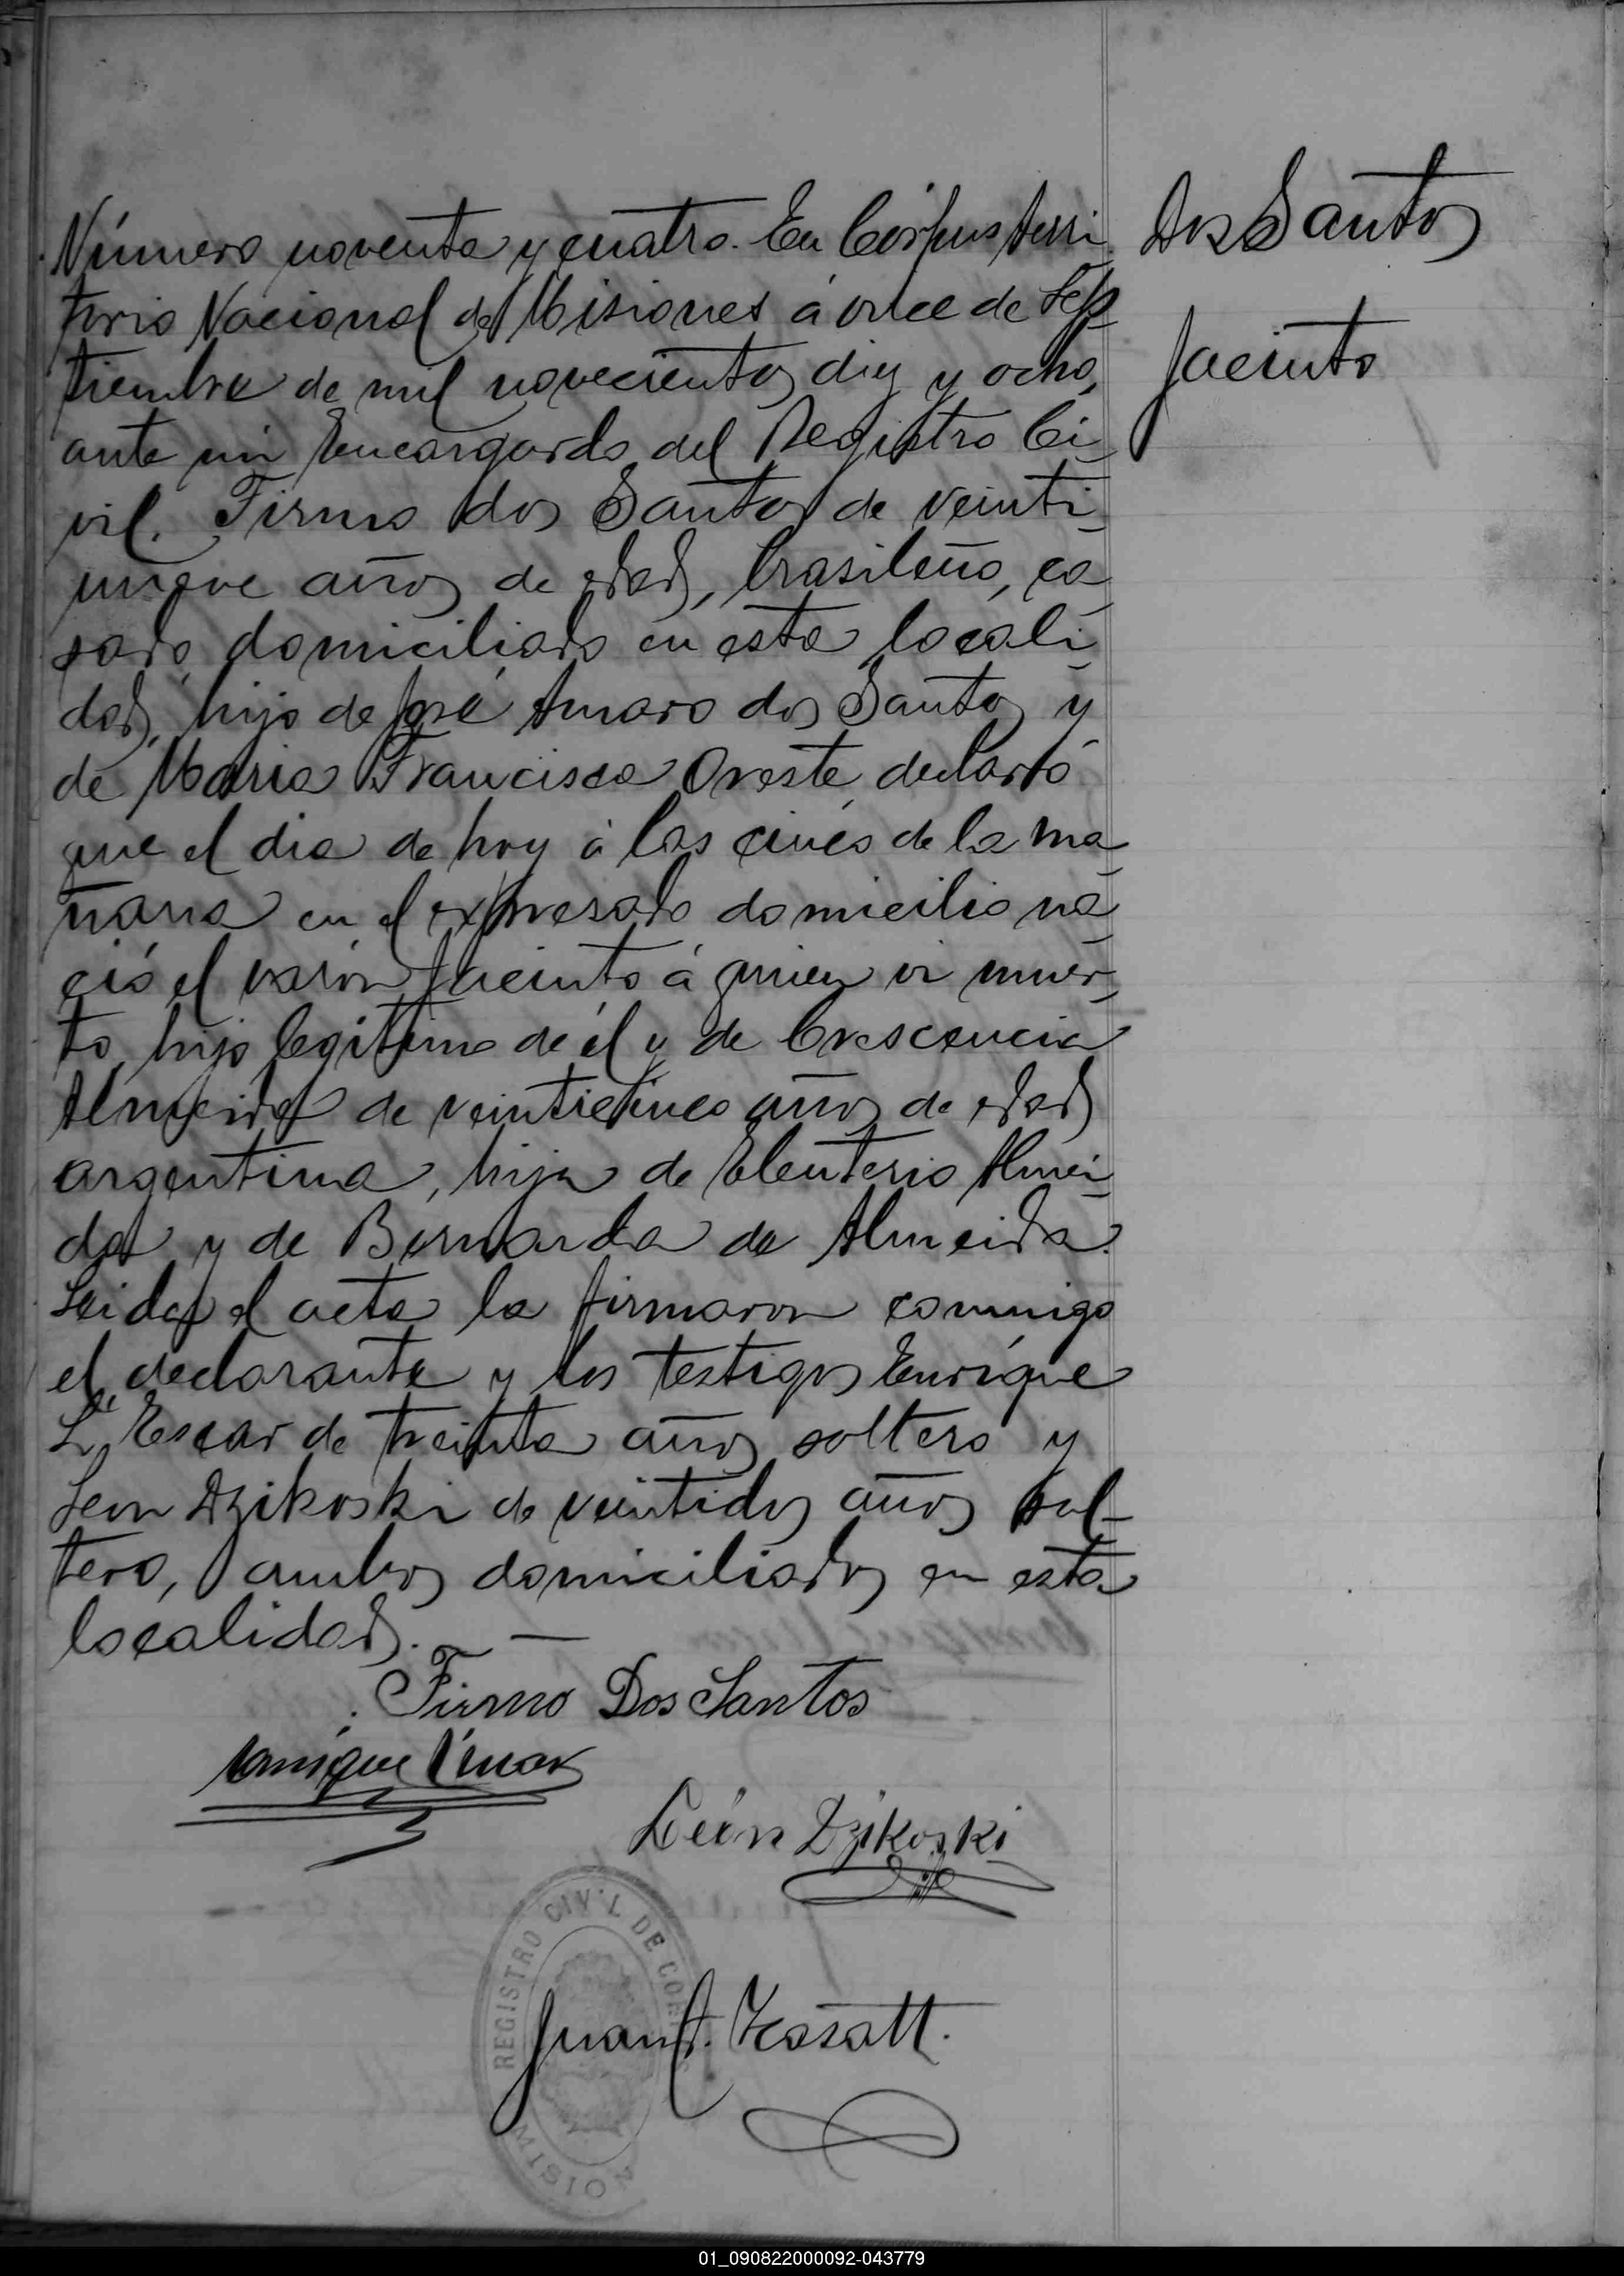 Dos Santos
Jacinto
Número noventa y cuatro. En Corpus Terri
torio Nacional de Misiones á once de Sep
tiembre de mil novecientos diez y ocho,
ante mi Encargado del Registro Ci
vil. Firmo dos Santos de veinti
nueve años de edad, brasileño, ca
sado domiciliado en esta locali
dad, hijo de José Amaro dos Santos y
de Maria Francisca Oreste declaró
que el dia de hoy á las cinco de la ma
ñana en el expresado domicilio na
ció el varón Jacinto á quien vi muer
to, hijo legitimo de él y de Crescencia
Almeida de veinticinco años de edad
argentina, hija de Eleuterio Almei
da y de Bernarda de Almeida.
Leida el acta la firmaron conmigo
el declarante y los testigos Enrique
L. Escar de treinta años soltero y
Leon Dzikoski de veintidos años sol-
tero, ambos domiciliados en esta
localidad. —
Firmo Dos Santos
Enrique
León Dzikoski
REGISTRO CIVIL DE
Juan
MISION
01_090822000092-043779